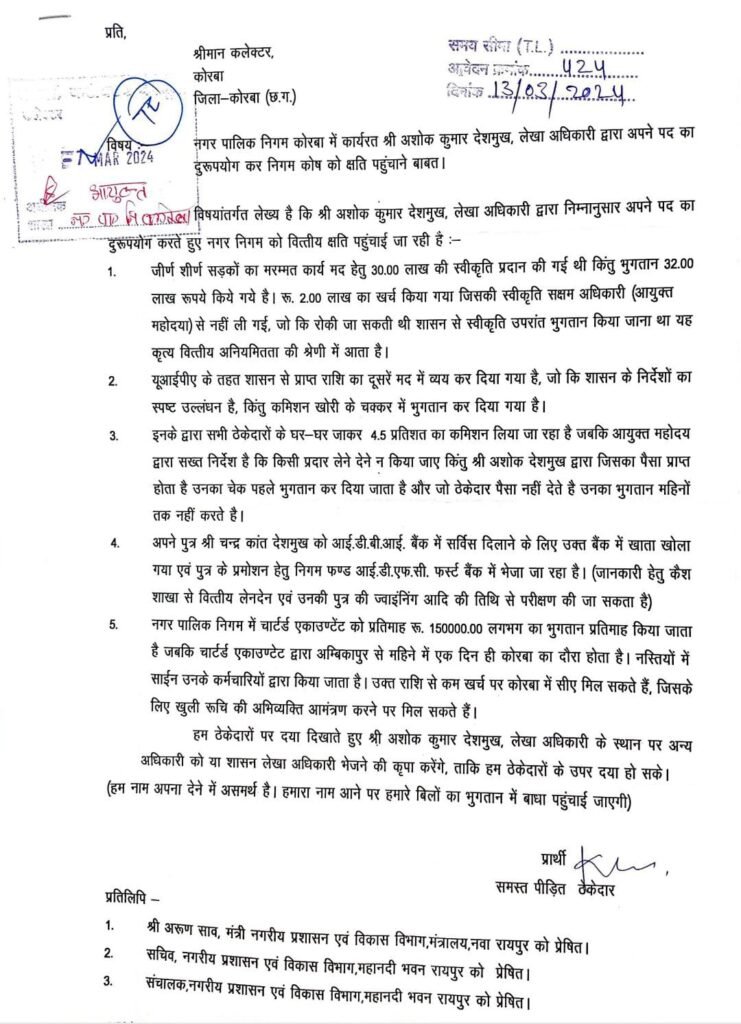 प्रति,
श्रीमान कलेक्टर,
कोरबा
जिला–कोरबा (छ.ग.)
समय सीमा (T.L.) ....................
आवेदन क्रमांक....424
दिनांक 13/03/2024
कलेक्टर
TL
MAR 2024
आयुक्त
शाखा
विषय :–
नगर पालिक निगम कोरबा में कार्यरत श्री अशोक कुमार देशमुख, लेखा अधिकारी द्वारा अपने पद का
दुरूपयोग कर निगम कोष को क्षति पहुंचाने बाबत।
विषयांतर्गत लेख्य है कि श्री अशोक कुंमार देशमुख, लेखा अधिकारी द्वारा निम्नानुसार अपने पद का
दुरूपयोग करते हुए नगर निगम को वित्तीय क्षति पहुंचाई जा रही है :–
1. जीर्ण शीर्ण सड़कों का मरम्मत कार्य मद हेतु 30.00 लाख की स्वीकृति प्रदान की गई थी किंतु भुगतान 32.00
लाख रूपये किये गये है। रू. 2.00 लाख का खर्च किया गया जिसकी स्वीकृति सक्षम अधिकारी (आयुक्त
महोदया) से नहीं ली गई, जो कि रोकी जा सकती थी शासन से स्वीकृति उपरांत भुगतान किया जाना था यह
कृत्य वित्तीय अनियमितता की श्रेणी में आता है।
2. यूआईपीए के तहत शासन से प्राप्त राशि का दूसरें मद में व्यय कर दिया गया है, जो कि शासन के निर्देशों का
स्पष्ट उल्लंधन है, किंतु कमिशन खोरी के चक्कर में भुगतान कर दिया गया है।
3. इनके द्वारा सभी ठेकेदारों के घर–घर जाकर 4.5 प्रतिशत का कमिशन लिया जा रहा है जबकि आयुक्त महोदय
द्वारा सख्त निर्देश है कि किसी प्रदार लेने देने न किया जाए किंतु श्री अशोक देशमुख द्वारा जिसका पैसा प्राप्त
होता है उनका चेक पहले भुगतान कर दिया जाता है और जो ठेकेदार पैसा नहीं देते है उनका भुगतान महिनों
तक नहीं करते है।
4. अपने पुत्र श्री चन्द्र कांत देशमुख को आई.डी.बी.आई. बैंक में सर्विस दिलाने के लिए उक्त बैंक में खाता खोला
गया एवं पुत्र के प्रमोशन हेतु निगम फण्ड आई.डी.एफ.सी. फर्स्ट बैंक में भेजा जा रहा है। (जानकारी हेतु कैश
शाखा से वित्तीय लेनदेन एवं उनकी पुत्र की ज्वाइंनिंग आदि की तिथि से परीक्षण की जा सकता है)
5. नगर पालिक निगम में चार्टर्ड एकाउण्टेंट को प्रतिमाह रू. 150000.00 लगभग का भुगतान प्रतिमाह किया जाता
है जबकि चार्टर्ड एकाउण्टेट द्वारा अम्बिकापुर से महिने में एक दिन ही कोरबा का दौरा होता है। नस्तियों में
साईन उनके कर्मचारियों द्वारा किया जाता है। उक्त राशि से कम खर्च पर कोरबा में सीए मिल सकते हैं, जिसके
लिए खुली रूचि की अभिव्यक्ति आमंत्रण करने पर मिल सकते हैं।
हम ठेकेदारों पर दया दिखाते हुए श्री अशोक कुमार देशमुख, लेखा अधिकारी के स्थान पर अन्य
अधिकारी को या शासन लेखा अधिकारी भेजने की कृपा करेंगे, ताकि हम ठेकेदारों के उपर दया हो सके।
(हम नाम अपना देने में असमर्थ है। हमारा नाम आने पर हमारे बिलों का भुगतान में बाधा पहुंचाई जाएगी)
प्रार्थी
समस्त पीड़ित ठेकेदार
प्रतिलिपि –
1. श्री अरूण साव, मंत्री नगरीय प्रशासन एवं विकास विभाग,मंत्रालय,नवा रायपुर को प्रेषित।
2. सचिव, नगरीय प्रशासन एवं विकास विभाग,महानदी भवन रायपुर को प्रेषित।
3. संचालक,नगरीय प्रशासन एवं विकास विभाग,महानदी भवन रायपुर को प्रेषित।